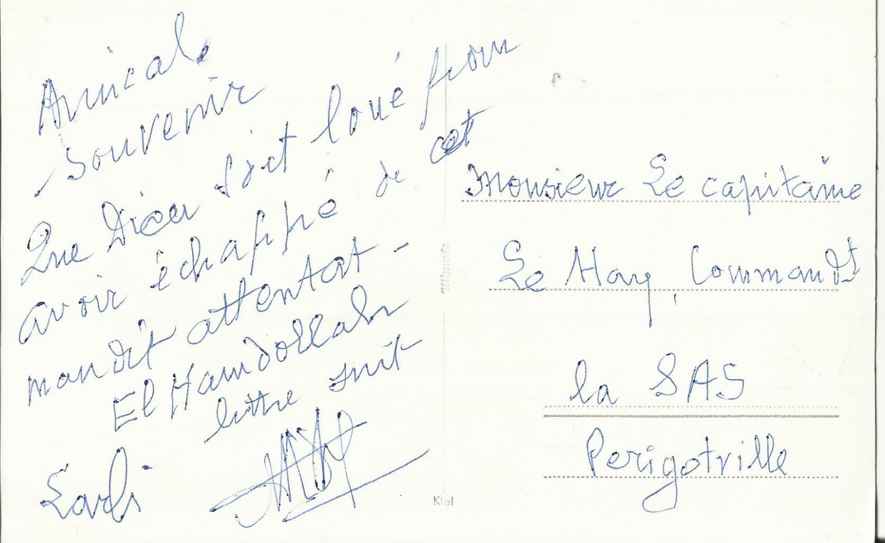 Amical
souvenir
Que Dieu soit loué pour
avoir échappé de cet
maudit attentat -
El Hamdollah
lettre suit
Larbi
Monsieur Le capitaine
Le Hay, Command^t
la SAS
Perigotville